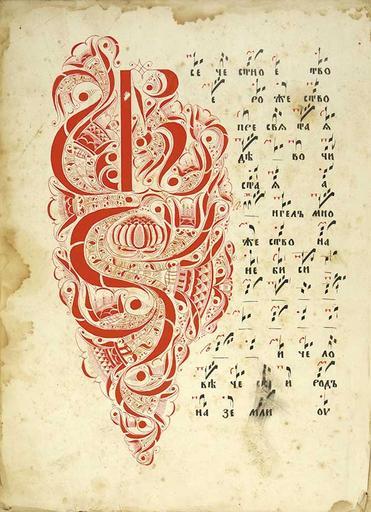 се че стно е тво
е ро же ство
пре свѧ та ѧ
дѣ во чи
ста ѧ а
нгелъ мно
же ство на
не би си
и че ло
вѣ че ски и родъ
на зе мли оу